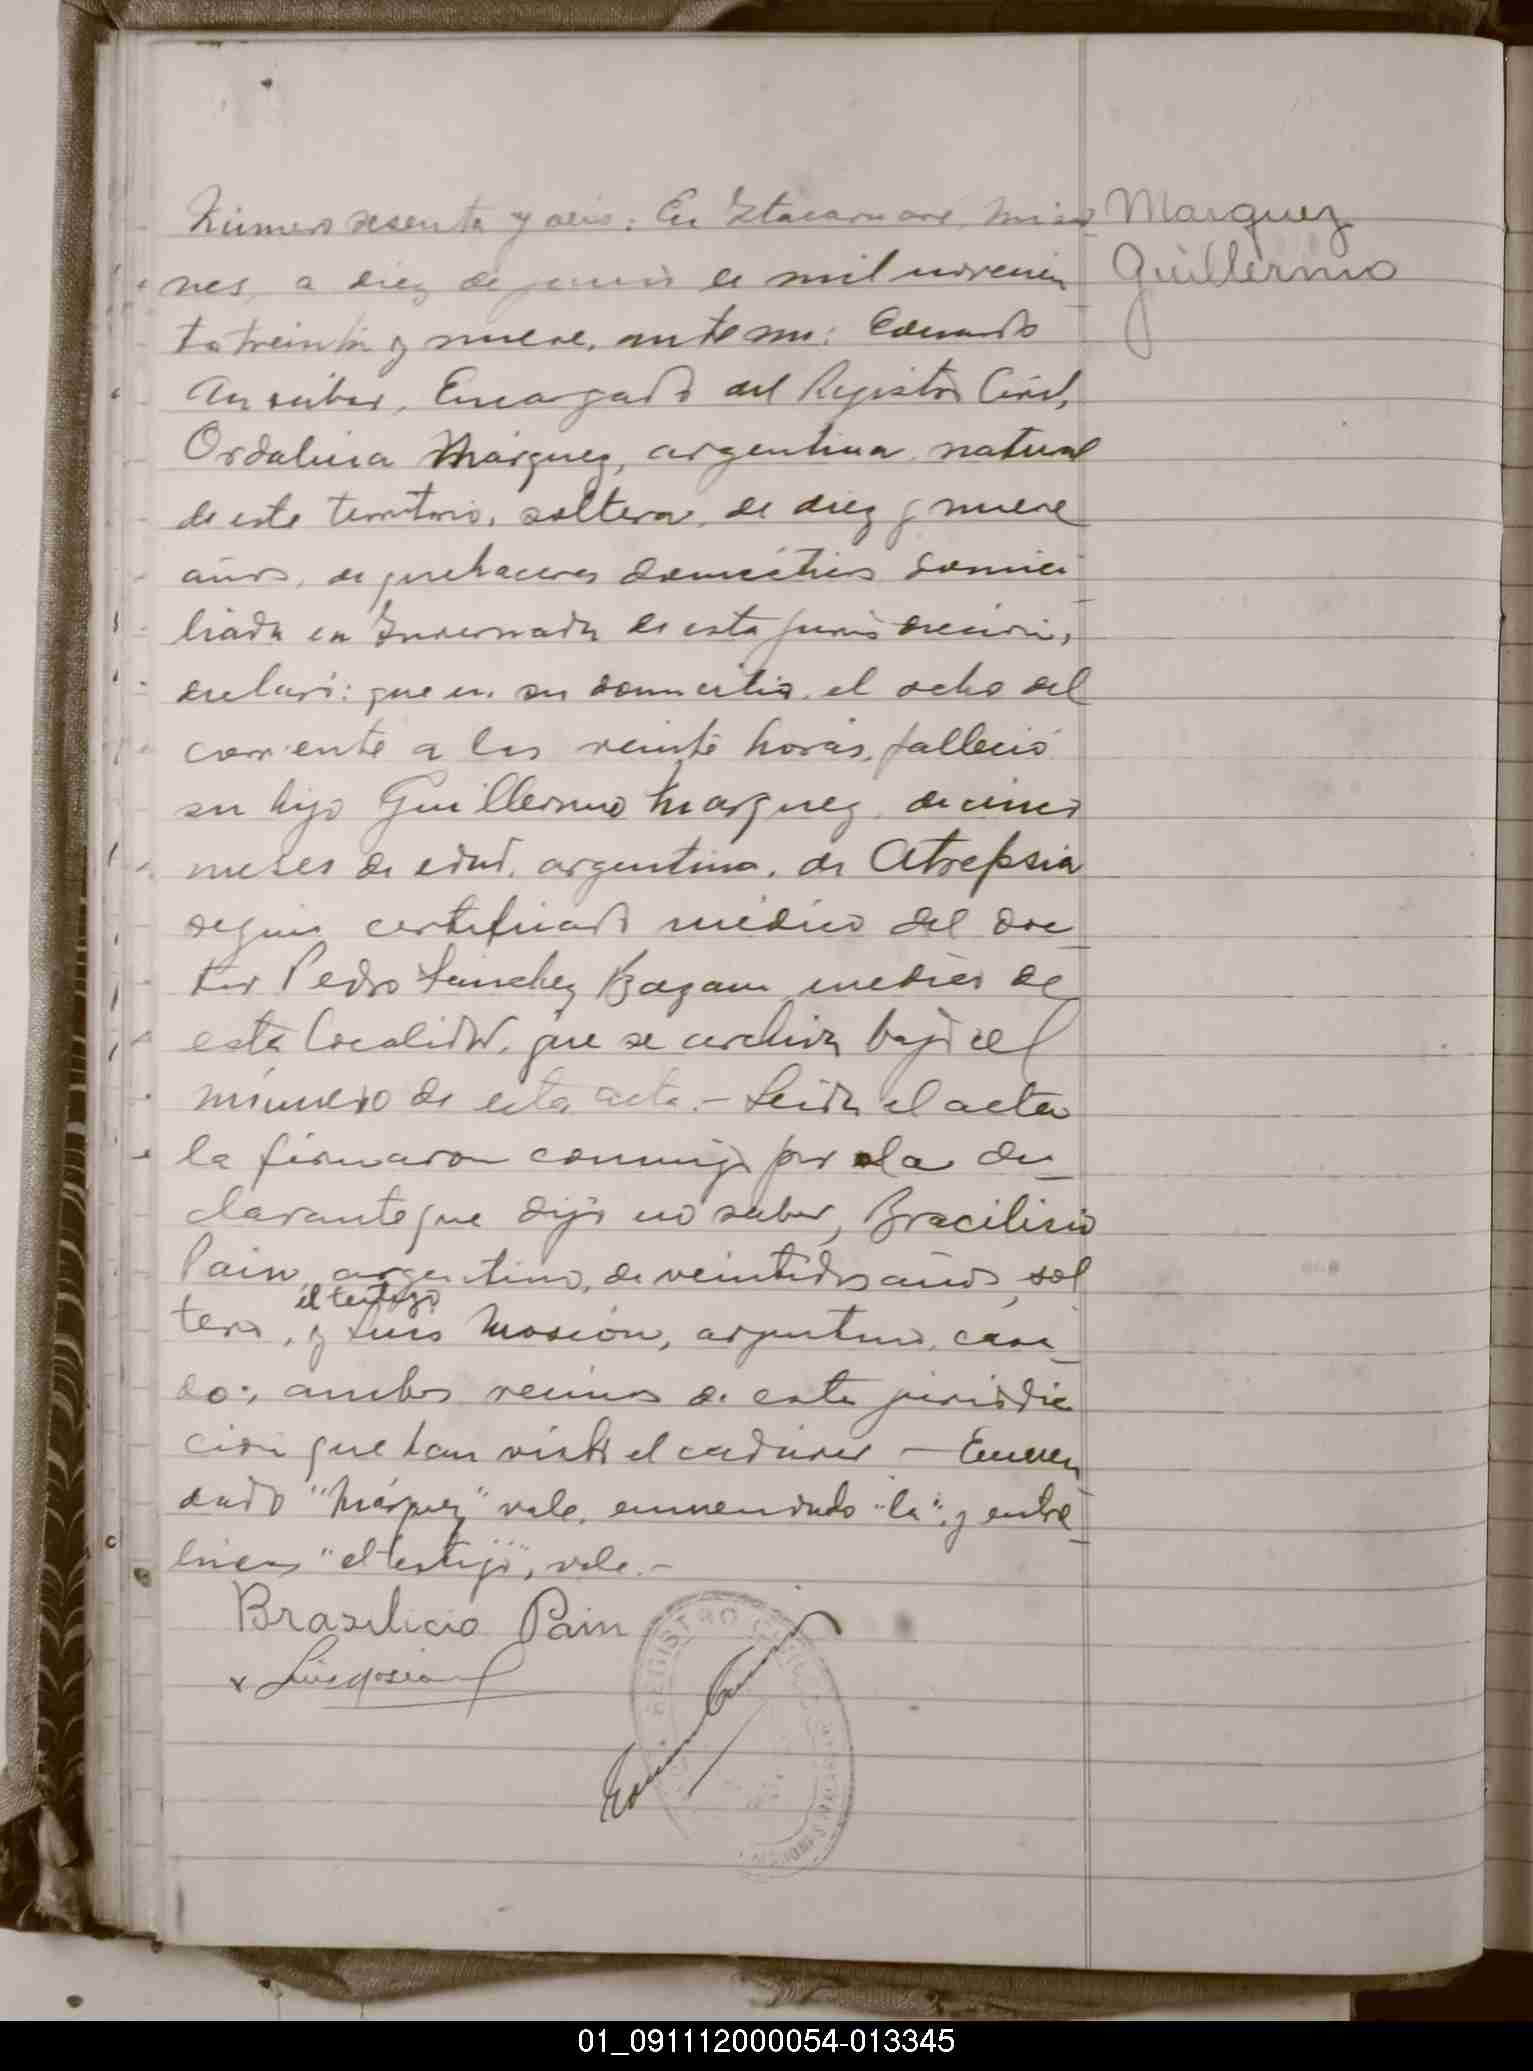 Número sesenta y seis: En Itacaruaré, Misio-
nes, a diez de junio de mil novecien-
to treinta y nueve, ante mi: Eduardo
Encargado del Registro Civil,
Ordalina Márquez, argentina, natural
de este territorio, soltera, de diez y nueve
años, de quehaceres domésticos domici-
liada en Invernada de esta jurisdicción,
declaró: que en su domicilio, el ocho del
corriente a las veinte horas, falleció
su hijo Guillermo Marquez, de cinco
meses de edad, argentino, de Atrepsia
según certificado médico del doc-
tor Pedro Sanchez Bazan medico de
esta localidad, que se archiva bajo el
número de esta acta.- Leida el acta
la firmaron conmigo por la de-
clarante que dijo no saber, Bracilicio
Pain, argentino, de veintidos años, sol
el testigo
tero, y Luis Mosion, argentino, casa-
do; ambos vecinos de esta jurisdic
ción que han visto el cadáver - Enmen-
dado "Márquez" vale, enmendado "la", y entre-
lineas "el testigo", vale.-
Brasilicio Pain
x Luis Mosion
Marquez
Guillermo
REGISTRO CIVIL
01_091112000054-013345